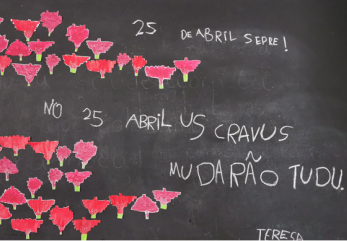 25 DE ABRIL SEPRE!
NO 25 ABRIL US CRAVUS
MUDARÃO TUDU.
TERESA